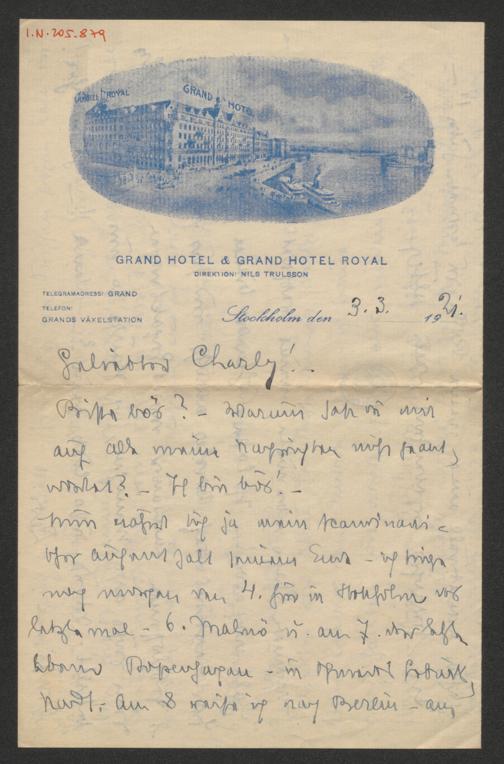 I.N. 205.879
GRAND HOTEL ROYAL
GRAND HOTEL
GRAND HOTEL & GRAND HOTEL ROYAL
DIREKTION: NILS TRULSSON
TELEGRAMADRESS: GRAND
TELEFON:
GRANDS VÄXELSTATION
Stockholm den 3.3. 1921.
Geliebter Charly! –
Bist bös? – Warum hast du mir
auf alle meine Nachrichten nicht geant,
wortet? – Ich bin bös! –
Nun nähert sich ja mein Scandinavi-
scher Aufenthalt seinem Ende – ich singe
noch morgen den 4. hier in Stockholm das
letzte mal – 6. Malmö u. am 7. der letzte
Abend Kopenhagen – in
Am 8 reise ich nach Berlin – auf